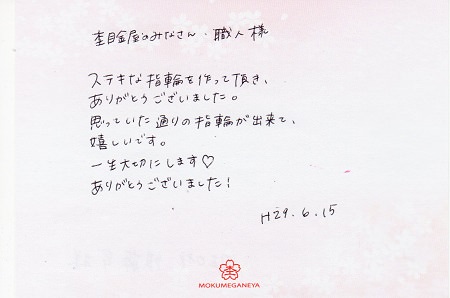 杢目金屋のみなさん・職人様
ステキな指輪を作って頂き、
ありがとうございました。
思っていた通りの指輪が出来て、
嬉しいです。
一生大切にします♡
ありがとうございました!
H29.6.15
MOKUMEGANEYA